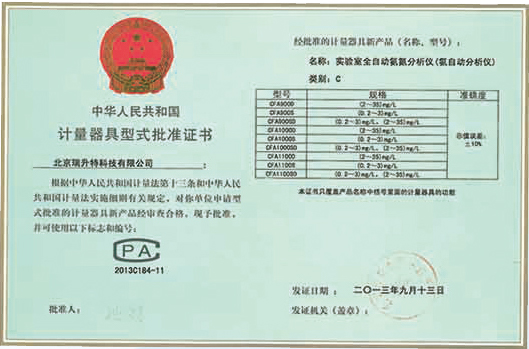 中华人民共和国
计量器具型式批准证书
北京瑞升特科技有限公司:
根据中华人民共和国计量法第十三条和中华人民
共和国计量法实施细则有关规定,对你单位申请型
式批准的计量器具新产品经审查合格,现予批准,
并可使用以下标志和编号:
CPA
2013C184-11
批准人:
经批准的计量器具新产品(名称、型号):
名称:实验室全自动氨氮分析仪(氨自动分析仪)
类别:C
型号 规格 准确度
CFA900D (2~35)mg/L
CFA900S (0.2~3)mg/L
CFA900SD (0.2~3)mg/L, (2~35)mg/L
CFA1000D (2~35)mg/L
CFA1000S (0.2~3)mg/L
CFA1000SD (0.2~3)mg/L, (2~35)mg/L
CFA1100D (2~35)mg/L
CFA1100S (0.2~3)mg/L
CFA1100SD (0.2~3)mg/L, (2~35)mg/L
示值误差:
±10%
本证书只覆盖产品名称中括号里面的计量器具的功能
发证日期:二〇一三年九月十三日
发证机关(盖章):